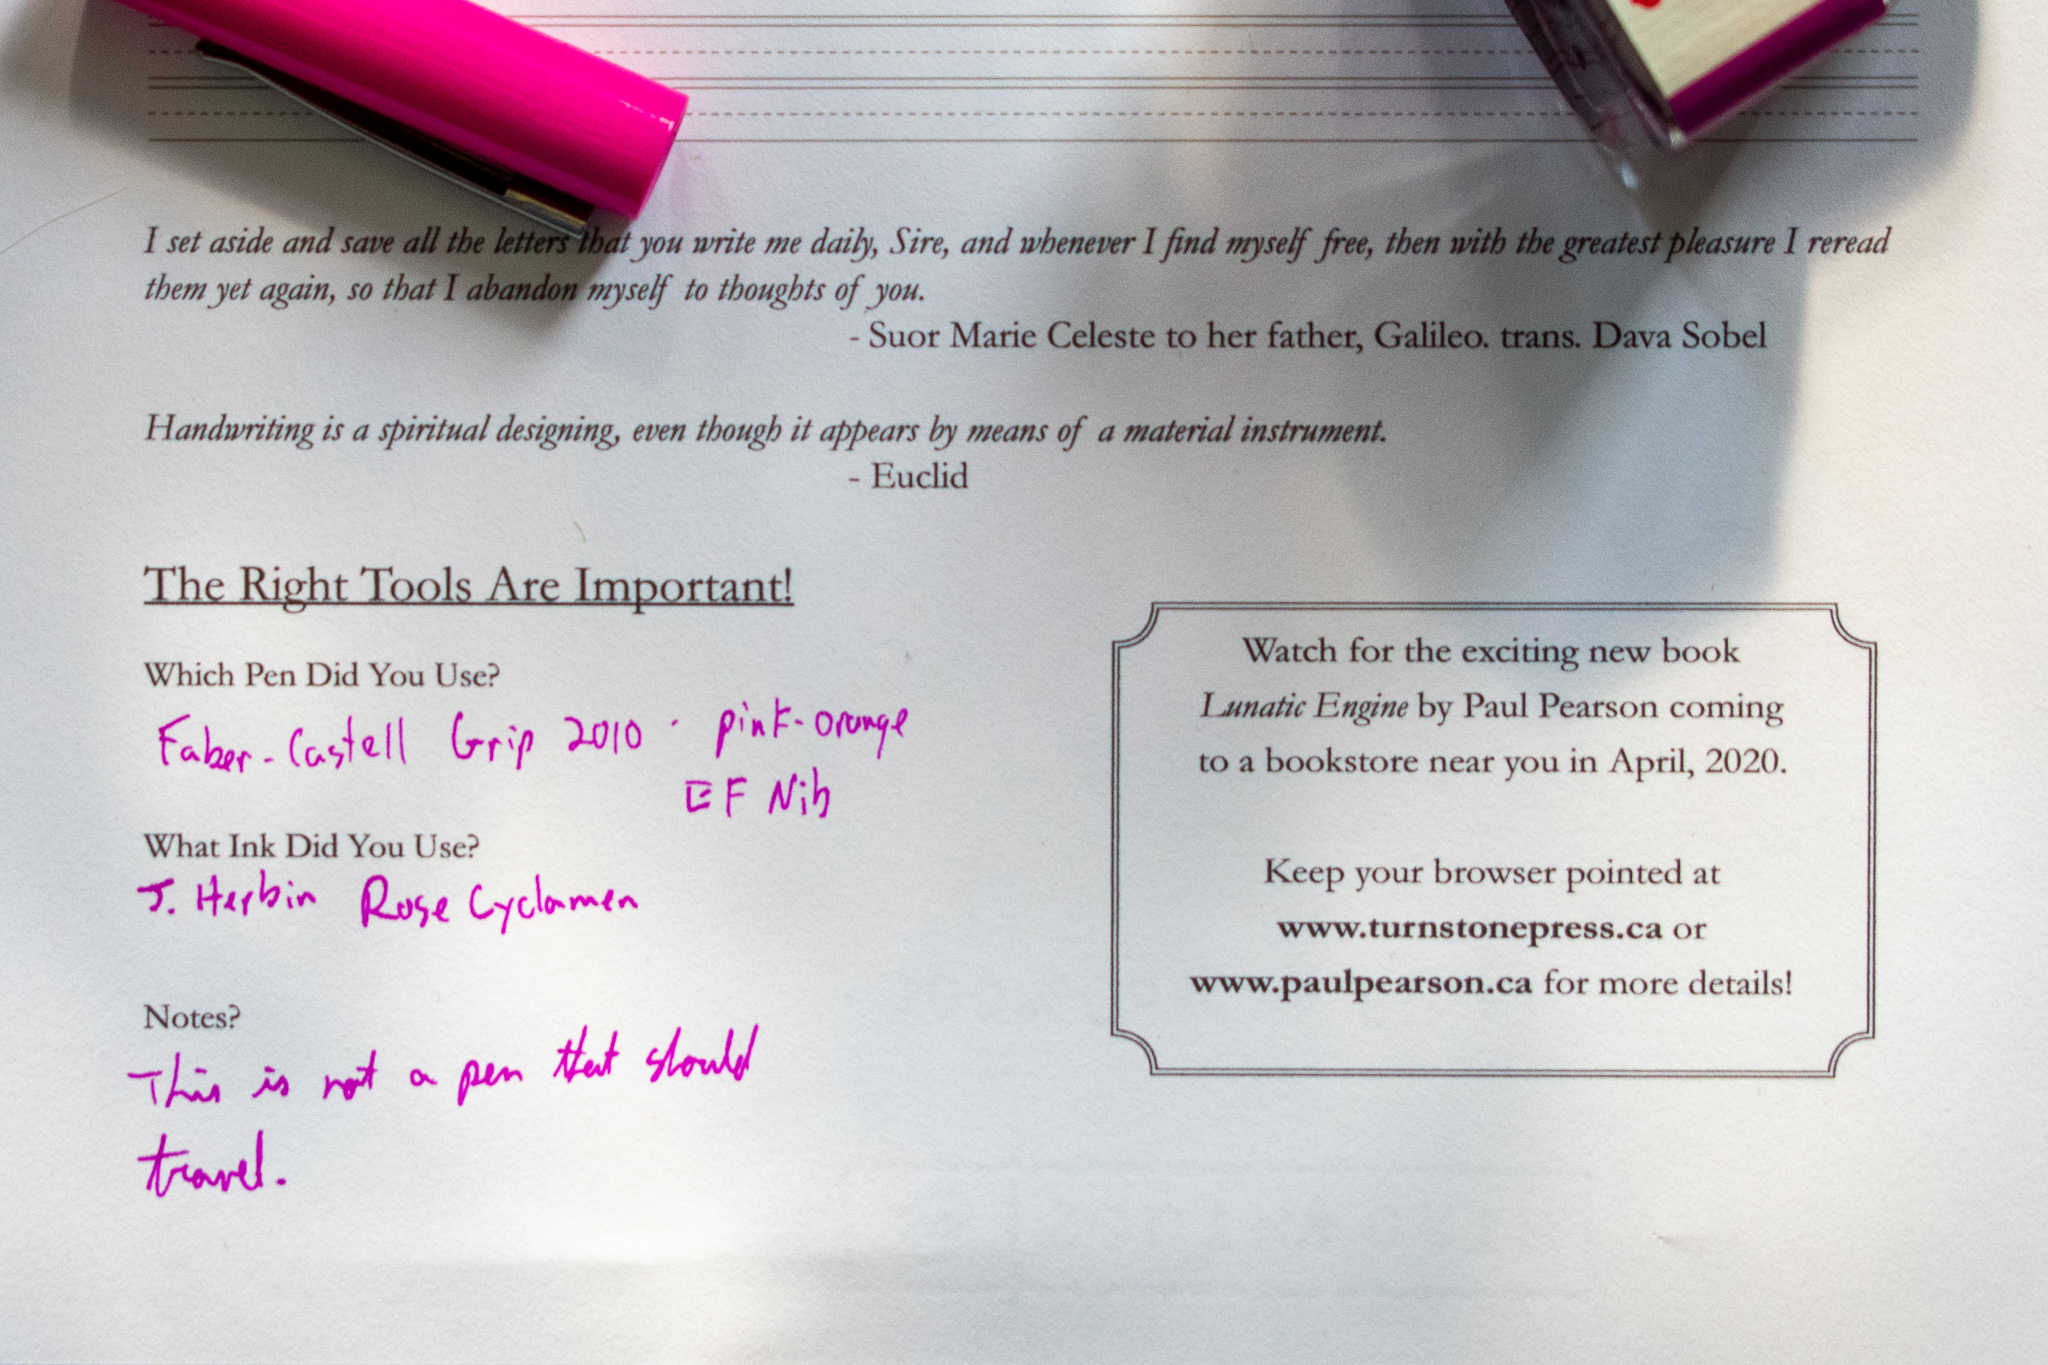 I set aside and save all the letters that you write me daily, Sire, and whenever I find myself free, then with the greatest pleasure I reread
them yet again, so that I abandon myself to thoughts of you.
- Suor Marie Celeste to her father, Galileo. trans. Dava Sobel
Handwriting is a spiritual designing, even though it appears by means of a material instrument.
- Euclid
The Right Tools Are Important!
Which Pen Did You Use?
Faber-Castell Grip 2010 · pink-orange
EF Nib
What Ink Did You Use?
J. Herbin Rose Cyclamen
Notes?
This is not a pen that should
travel.
Watch for the exciting new book
Lunatic Engine by Paul Pearson coming
to a bookstore near you in April, 2020.
Keep your browser pointed at
www.turnstonepress.ca or
www.paulpearson.ca for more details!